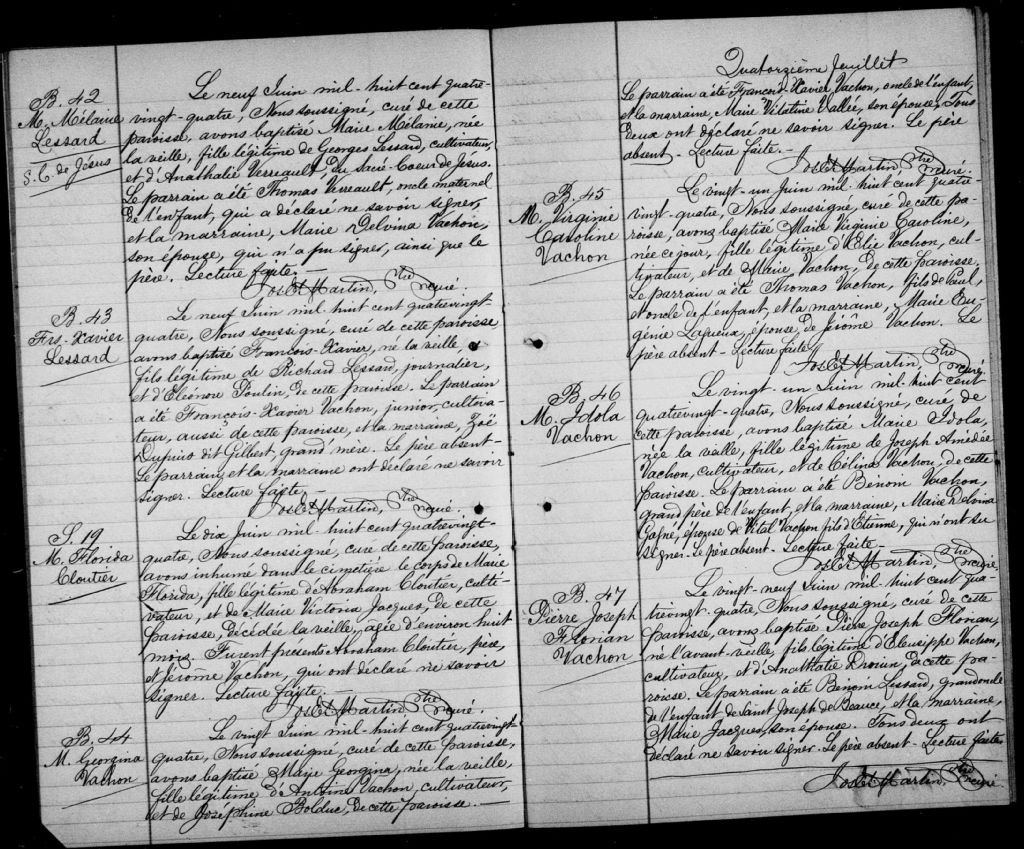 B. 42
M. Mélanie
Lessard
S. C. de Jésus
Le neuf Juin mil-huit cent quatre-
vingt-quatre, Nous soussigné, curé de cette
paroisse, avons baptisé Marie Mélanie, née
la veille, fille légitime de Georges Lessard, cultivateur,
et d'Anathalie Verreault, Du Sacré-Coeur de Jésus.
Le parrain a été Thomas Verreault, oncle maternel
de l'enfant, qui a déclaré ne savoir signer,
et la marraine, Marie Delvina Vachon,
son épouse, qui n'a pu signer, ainsi que le
père. Lecture faite.—
Jos Et Martin, Ptre curé.
B. 43
Frs-Xavier
Lessard
Le neuf Juin mil huit cent quatrevingt
quatre, Nous soussigné, curé de cette paroisse
avons baptisé François-Xavier, né la veille,
fils légitime de Richard Lessard, journalier,
et d'Eléonore Poulin, de cette paroisse. Le parrain
a été François-Xavier Vachon, junior, cultiva-
teur, aussi de cette paroisse, et la marraine, Zoë
Dupuis dit Gilbert, grand'mère. Le père absent-
Le parrain et la marraine ont déclaré ne savoir
signer. Lecture faite
Jos Et Martin, Ptre curé.
S. 19
M. Florida
Cloutier
Le dix Juin mil-huit cent quatrevingt-
quatre, Nous soussigné, curé de cette paroisse,
avons inhumé dans le cimetière le corps de Marie
Florida, fille légitime d'Abraham Cloutier, culti-
vateur, et de Marie Victoria Jacques, de cette
paroisse, décédée la veille, agée d'environ huit
mois. Furent présents Abraham Cloutier, père,
et Jérôme Vachon, qui ont déclaré ne savoir
signer. Lecture faite.—
Jos Et Martin Ptre curé.
B. 44
M. Georgina
Vachon
Le vingt Juin mil-huit cent quatrevingt
quatre, Nous soussigné, curé de cette paroisse,
avons baptisé Marie Georgina, née la veille,
fille légitime d'Antoine Vachon, cultivateur,
et de Josephine Bolduc, de cette paroisse.—
Quatorzième feuillet
Le parrain a été François Xavier Vachon, oncle de l'enfant,
et la marraine, Marie Vitaline Vallée, son épouse, Tous
deux ont déclaré ne savoir signer. Le père
absent- Lecture faite-
Jos Et Martin, Ptre curé.
B. 45
M. Virginie
Caroline
Vachon
Le vingt-un Juin mil-huit cent quatre
vingt-quatre, Nous soussigné, curé de cette pa-
roisse, avons baptisé Marie Virginie Caroline,
née ce jour, fille légitime d'Elie Vachon, cul-
tivateur, et de Marie Vachon, de cette paroisse.
Le parrain a été Thomas Vachon, fils de Paul,
et oncle de l'enfant, et la marraine, Marie Eu-
génie Lapueux, épouse de Jérôme Vachon. Le
père absent- Lecture faite
Jos Et Martin, Ptre curé.
B. 46
M. Idola
Vachon
Le vingt-un Juin mil-huit cent
quatrevingt-quatre, Nous soussigné, curé de
cette paroisse, avons baptisé Marie Idola,
née la veille, fille légitime de Joseph Amédée
Vachon, cultivateur, et de Célina Vachon, de cette
paroisse. Le parrain a été Bénoni Vachon,
grand père de l'enfant, et la marraine, Marie Delvina
Gagné, épouse de Vital Vachon fils d'Etienne, qui n'ont su
signer. Le père absent- Lecture faite
Jos Et Martin, Ptre curé.
B. 47
Pierre Joseph
Florian
Vachon
Le vingt-neuf Juin mil-huit cent qua-
trevingt-quatre, Nous soussigné, curé de cette
paroisse, avons baptisé Pierre Joseph Florian,
né l'avant-veille, fils légitime d'Eleusippe Vachon,
cultivateur, et d'Anathalie Drouin, de cette pa-
roisse. Le parrain a été Bénoni Lessard, grand oncle
de l'enfant de Saint Joseph de Beauce, et la marraine,
Marie Jacques, son épouse. Tous deux ont
déclaré ne savoir signer. Le père absent- Lecture faite.
Jos Et Martin, Ptre curé.